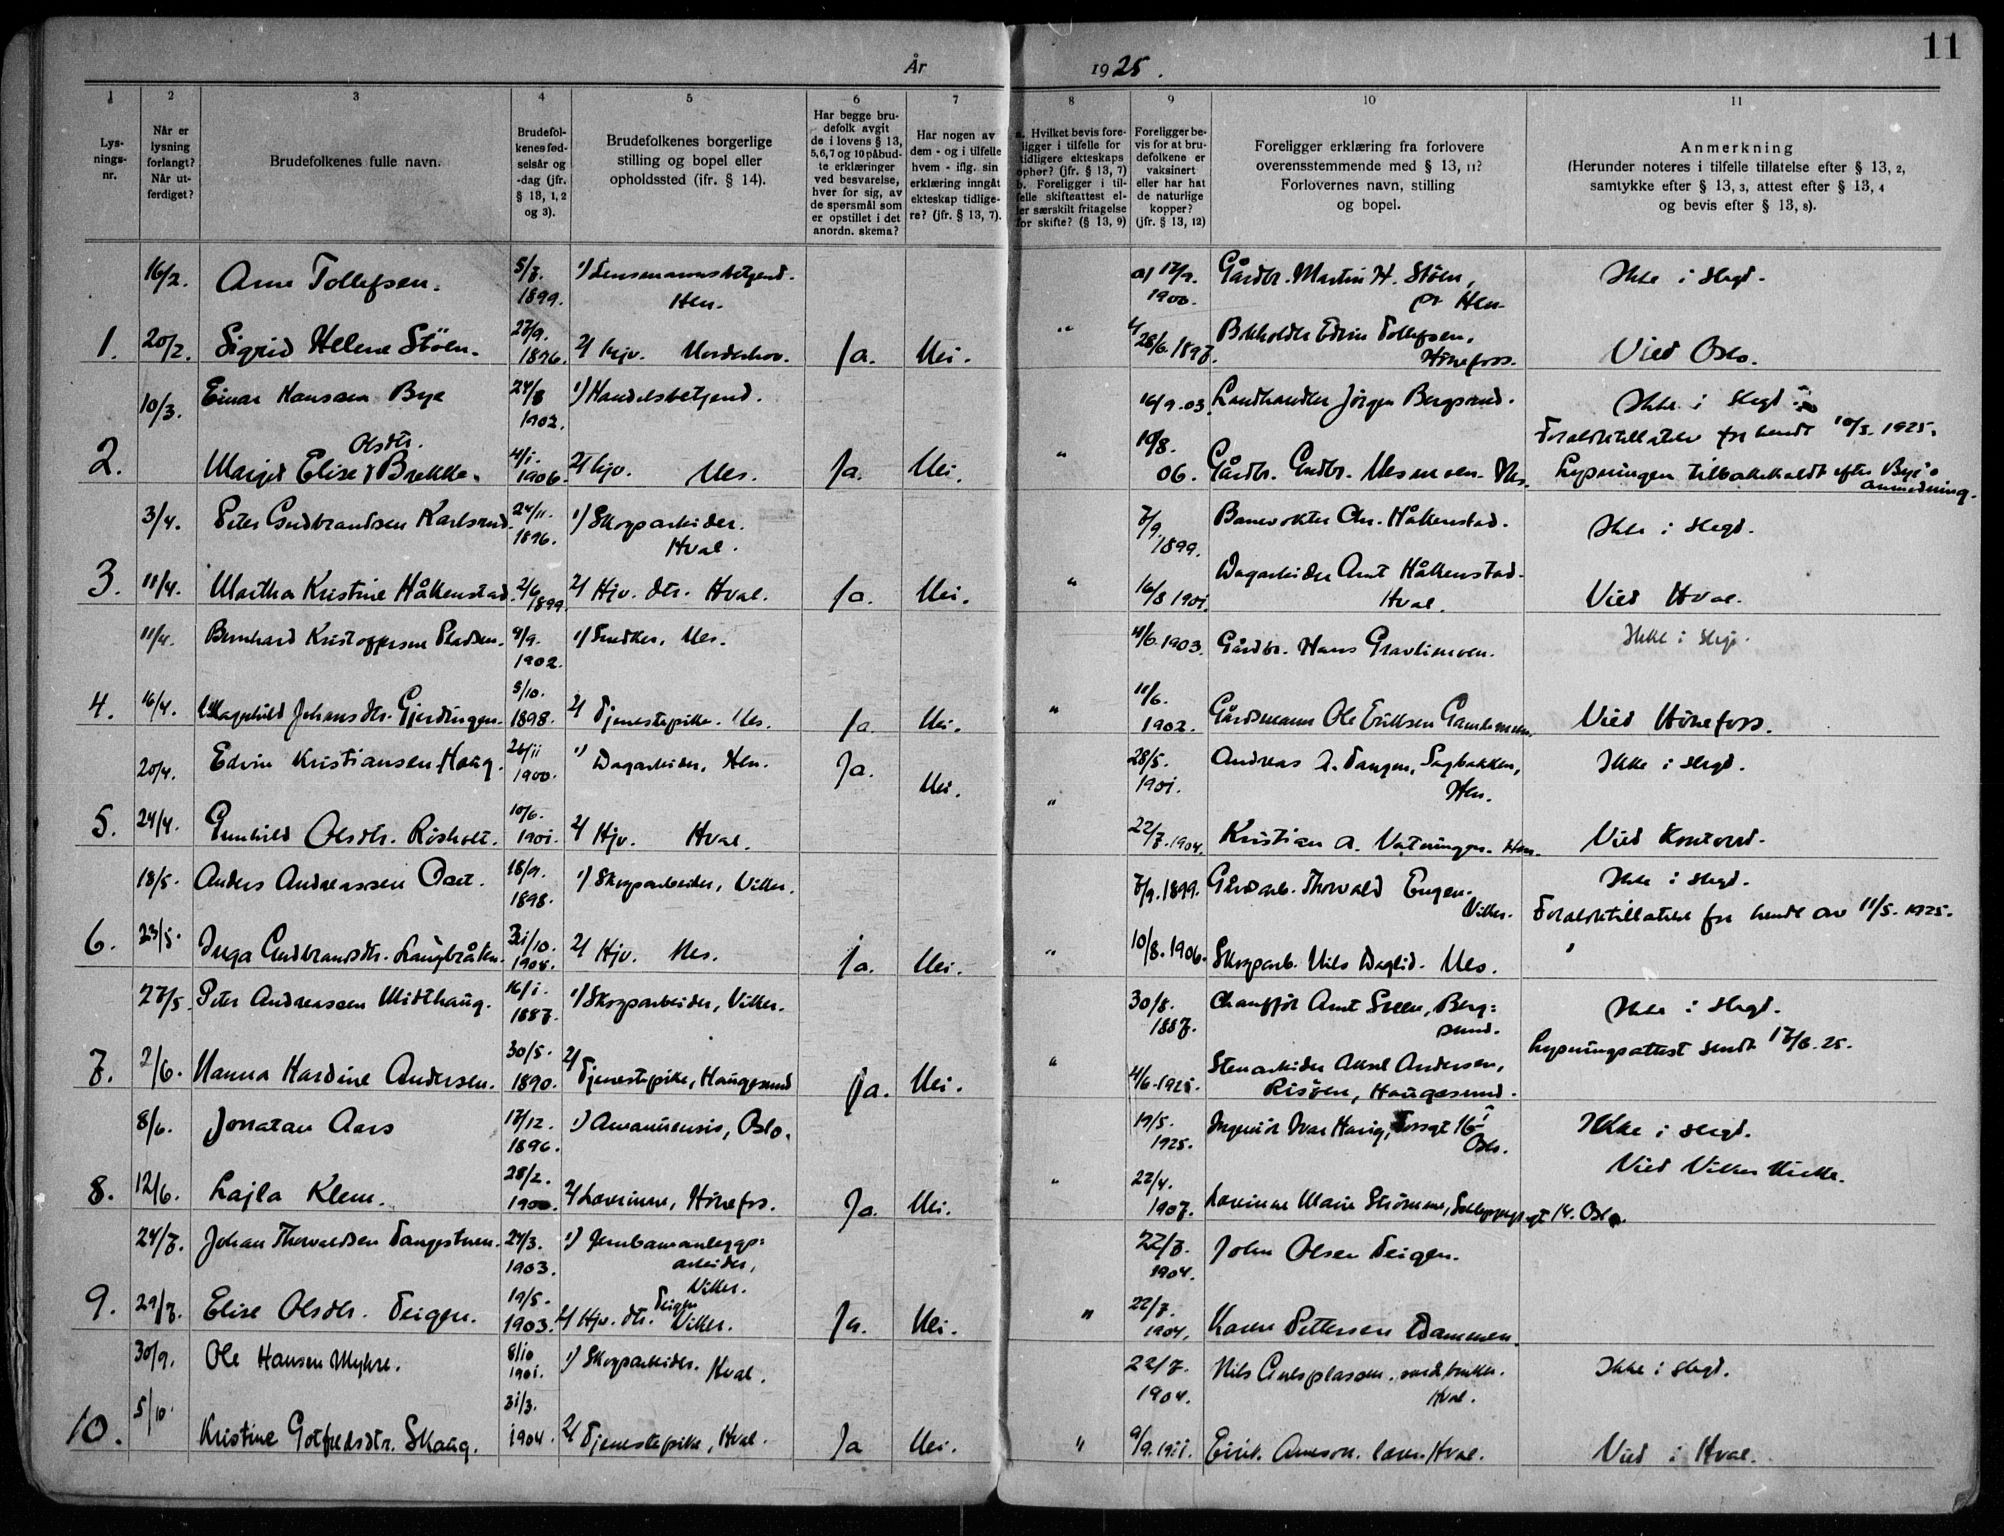 11
År 1925.
1
2
3
4
5
6
7
8
9
10
11
Lys-
nings-
nr.
Når er
lysning
forlangt?
Når ut-
ferdiget?
Brudefolkenes fulle navn.
Brudefol-
kenes fød-
selsår og
-dag (jfr.
§ 13, 1, 2
og 3).
Brudefolkenes borgerlige
stilling og bopel eller
opholdssted (jfr. § 14).
Har begge bru-
defolk avgit
de i lovens § 13,
5, 6, 7 og 10 påbud-
te erklæringer
ved besvarelse,
hver for sig, av
de spørsmål som
er opstillet i det
anordn. skema?
Har nogen av
dem - og i tilfelle
hvem - iflg. sin
erklæring inngåt
ekteskap tidlige-
re? (jfr. § 13, 7).
a. Hvilket bevis fore-
ligger i tilfelle for
tidligere ekteskaps
ophør? (jfr. § 13, 7)
b. Foreligger i til-
felle skifteattest el-
ler særskilt fritagelse
for skifte? (§ 13, 9)
Foreligger be-
vis for at bru-
defolkene er
vaksinert
eller har hat
de naturlige
kopper?
(jfr. § 13, 12)
Foreligger erklæring fra forlovere
overensstemmende med § 13, 11?
Forlovernes navn, stilling
og bopel.
Anmerkning
(Herunder noteres i tilfelle tillatelse efter § 13, 2,
samtykke efter § 13, 3, attest efter § 13, 4
og bevis efter § 13, 8).
16/2. Arne Tollefsen. 5/7. 1899. 1) Lensmannsbetjent. Hen. 17/9. 1900. Gårdbr. Martin H. Støen, Hen. Ikke i slegt.
1. 20/2. Sigrid Helene Støen. 27/9. 1896. 2) Hjv. Norderhov. Ja. Nei. " 28/6. 1897. Edvin Tollefsen, Hønefoss. Vied Oslo.
10/3. Einar Hansen Bye 24/8 1902. 1) Handelsbetjent. 16/9. 03. Landhandler Jörgen Bergsund. Ikke i slegt.
2. Margit Elise Olsdtr. Brekke. 4/1. 1906. 2) Hjv. Nes. Ja. Nei. " 10/8. 06. Gårdbr. Gudbr. Nesmoen. Nes. 10/3. 1925. Lysningen tilbakekaldt efter Bye's anmodning.
3/4. Peter Gudbrandsen Karlsrud. 24/11. 1896. 1) Skogsarbeider. Hval. 7/9. 1899. Banevokter Chr. Håkenstad. Ikke i slegt.
3. 11/4. Martha Kristine Håkenstad. 2/6 1899. 2) Hjv. dtr. Hval. Ja. Nei. " 16/8 1901. Dagarbeider Arnt Håkenstad. Hval. Vied Hval.
11/4. Bernhard Kristoffersen 9/9. 1902. 1) Snedker, Nes. 4/6. 1903. Gårdbr. Hans Gravlimoen. Ikke i slegt.
4. 16/4. Ragnhild Johansdtr. Gjerdingen. 5/10. 1898. 2) Tjenestepike. Nes. Ja. Nei. " 11/6. 1902. Gårdsmann Ole Eriksen Vied Hønefoss.
20/4. Edvin Kristiansen Haug. 26/11 1900. 1) Dagarbeider, Hen. Ja. Nei. 28/5. 1901. Andreas A. Tangen, Sagbakken, Hen. Ikke i slegt.
5. 24/4. Gunhild Olsdtr. Røsholt. 10/6. 1901. 2) Hjv. Hval. " 22/7. 1904. Kristian A. Hen. Vied
18/5. Anders Andreassen 18/9. 1898. 1) Skogsarbeider, Viker. 7/9. 1899. Gårdarb. Thorvald Engen. Viker. Ikke i slegt. 11/5. 1925.
6. 23/5. Inga Gudbrandsdtr. Langbråten. 31/10. 2) Hjv. Nes. Ja. Nei. " 10/8. 1906. Skogsarb. Nils Nes.
27/5. Peter Andreassen Midthaug. 16/1. 1887. 1) Skogsarbeider, Viker. 30/8. 1887. Chauffør Arnt Bergsund. Ikke i slegt.
7. 2/6. Nanna Hardine Andersen. 30/5. 1890. 2) Tjenestepike, Haugesund Ja. Nei. " 4/6. 1925. Stenarbeider Aksel Andersen, Risøen, Haugesund. Lysningsattest sendt 17/6. 25.
8/6. Jonatan Aars 17/12. 1896. 1) Amanuensis, Oslo. 19/5. 1925. Ingeniør Ivar Oslo. Ikke i slegt.
8. 12/6. Lajla Klem. 28/2. 1900. 2) Lærerinne, Hönefos. Ja. Nei. " 22/4. 1907. Lærerinne Marie Strømme, 14. Oslo. Vied Viker kirke.
24/7. Johan Thorvaldsen Tangestuen. 24/3. 1903. 1) Jernbaneanleggs= arbeider, Viker. 22/7. 1904. John Olsen Teigen.
9. 29/7. Elise Olsdtr. Teigen. 19/5. 1903. 2) Hjv. dtr. Teigen Viker. Ja. Nei. " 22/7. 1904. Karen Pettersen Dammen.
30/9. Ole Hansen Myhre. 8/10 1901. 1) Skogsarbeider. Hval. 22/7. 1904. Nils Hval. Ikke i slegt.
10. 5/10. Kristine Gotfredsdtr. Skaug. 31/3. 1904. 2) Tjenestepike, Hval. Ja Nei. " 9/9. 1911. Eirik Arneson. lærer. Hval. Vied i Hval.